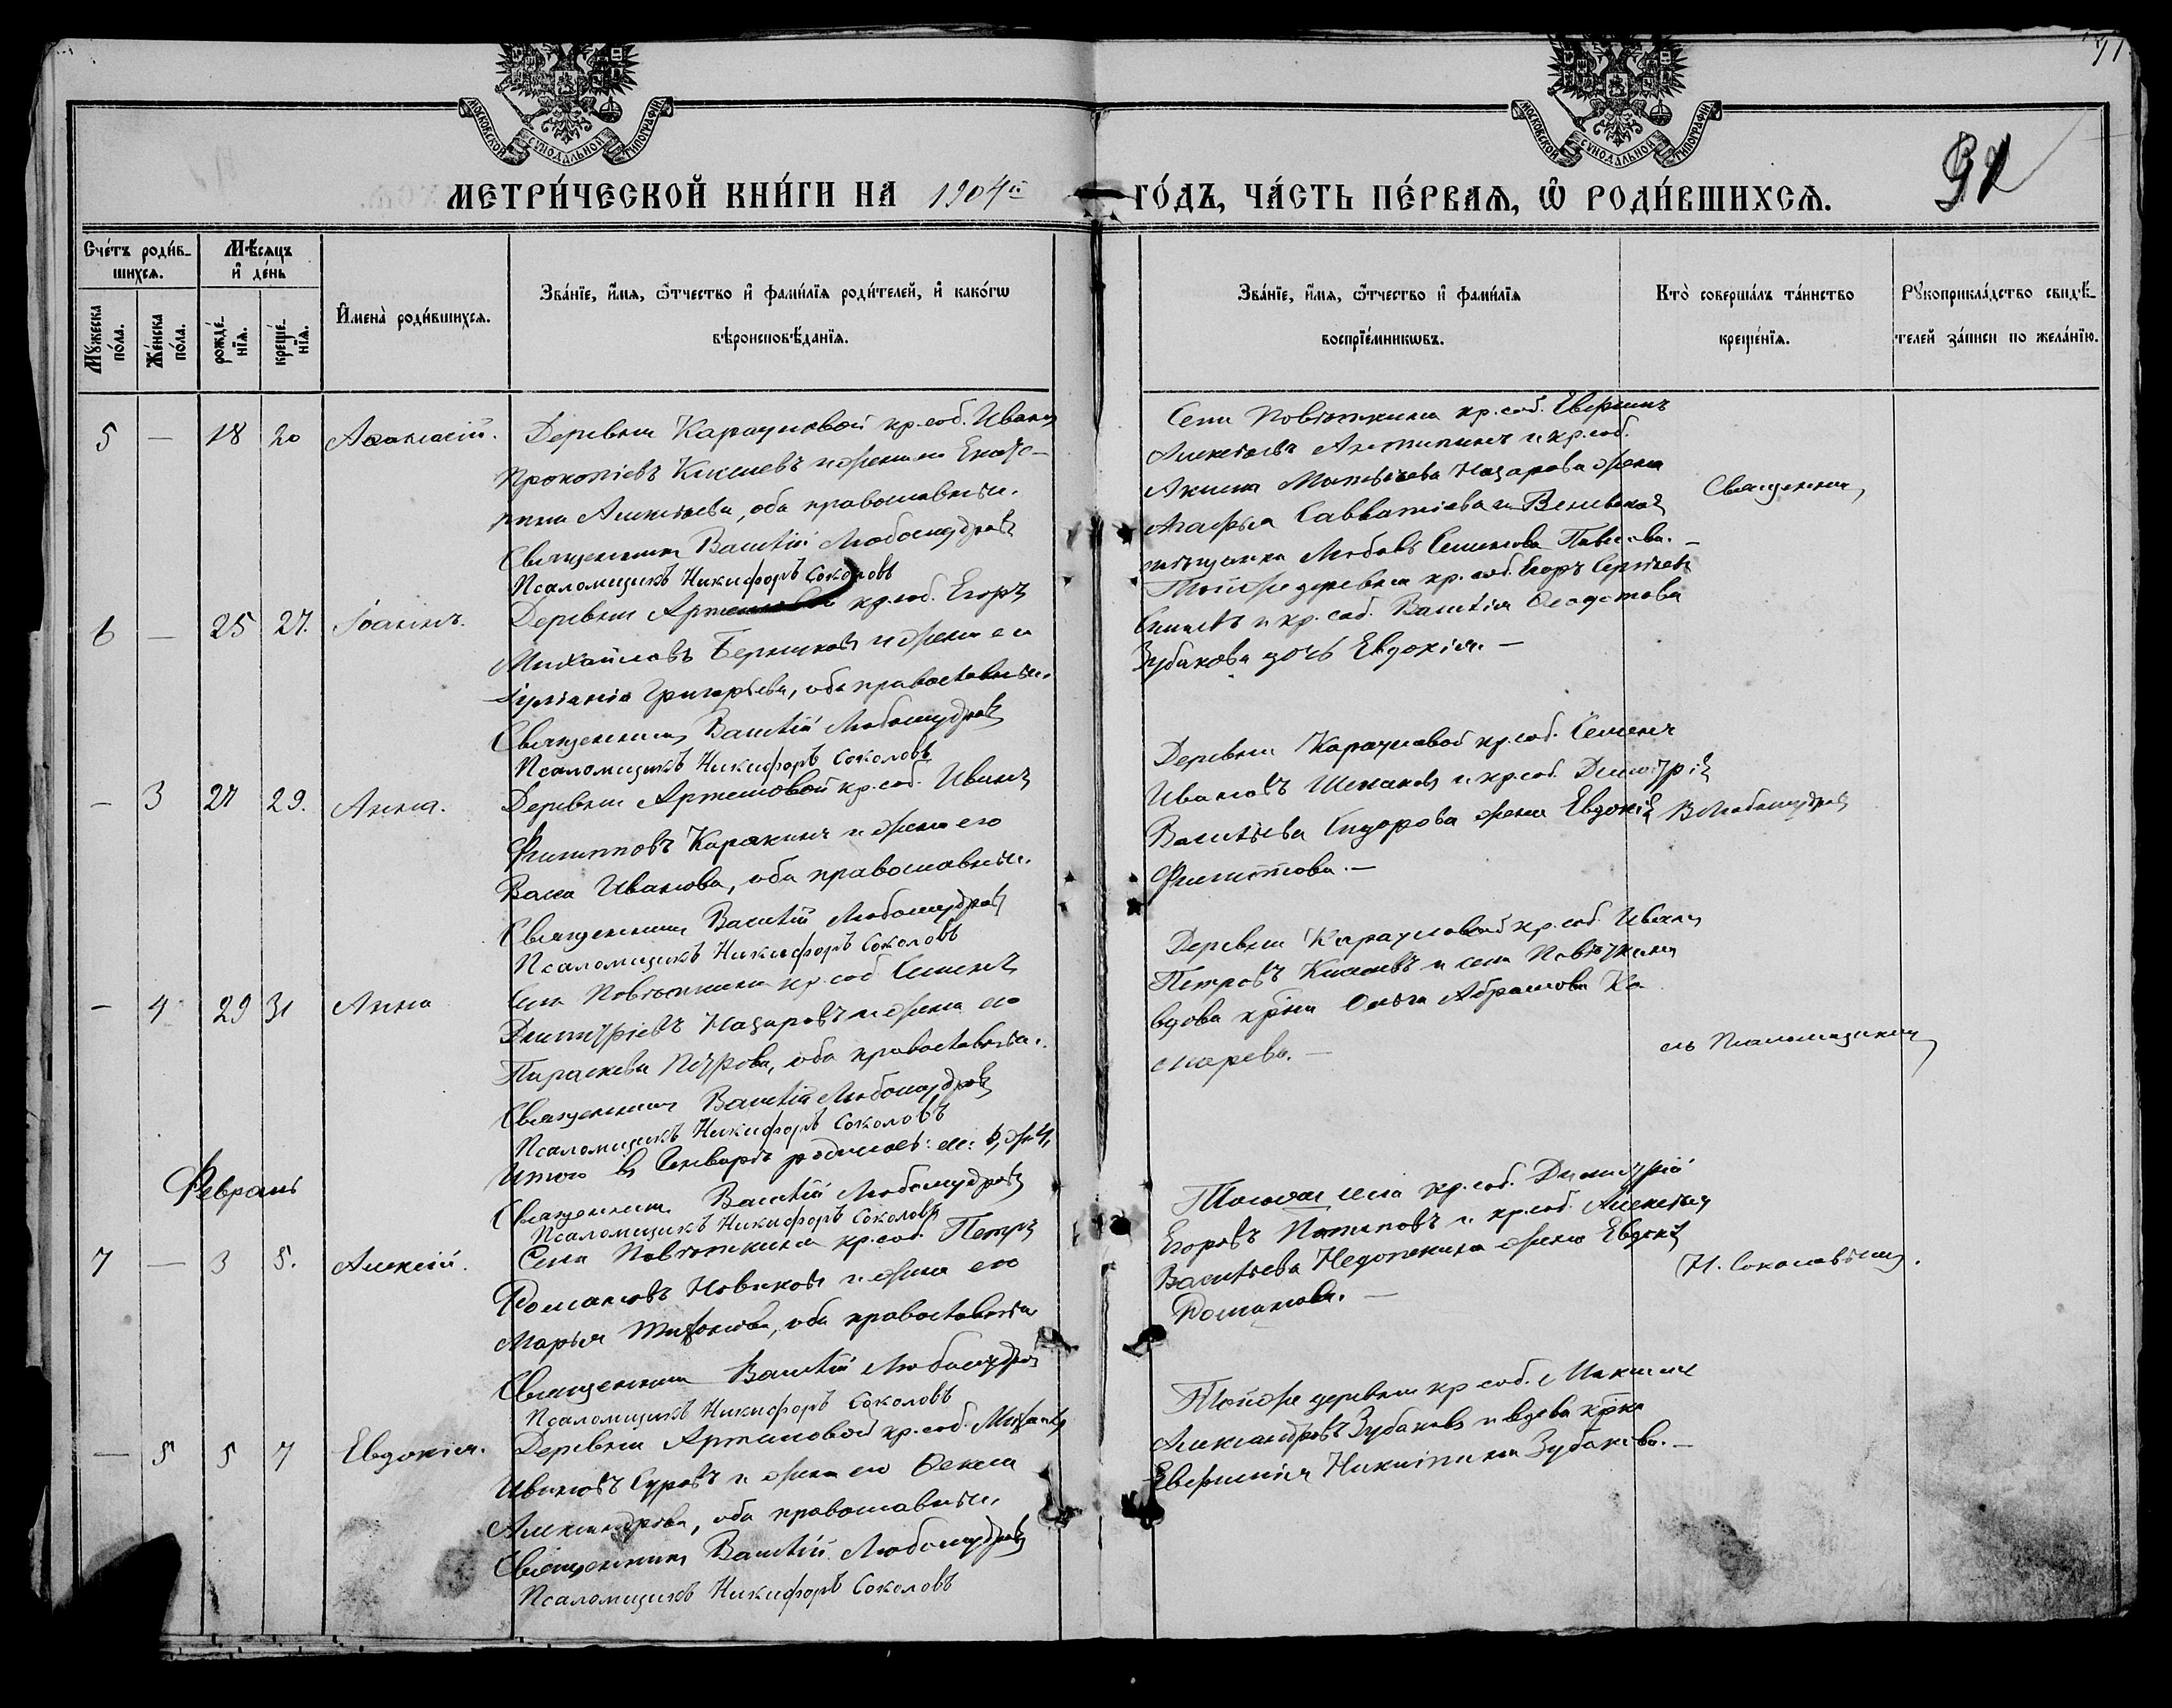 91
МОСКОВСКОЙ СѴНОДАЛЬНОЙ ТИПОГРАФІИ
МОСКОВСКОЙ СѴНОДАЛЬНОЙ ТИПОГРАФІИ
МЕТРИ́ЧЕСКОЙ КНИ́ГИ НА 1904й ГО́ДЪ, ЧА́СТЬ ПЕ́РВАЯ, Ѡ РОДИ́ВШИХСЯ.
91
Сче́тъ роди́в-
шихся.
Мѣсяцъ
и де́нь
Мꙋ́жеска по́ла.
Же́нска по́ла.
рожде́-нїя.
креще́-нїя.
Имена̀ роди́вшихся.
Зва́нїе, и́мя, ѻ҆́тчество и҆ фами́лїя роди́телей, и҆ како́гѡ
вѣроисповѣ́данїя.
Зва́нїе, и́мя, ѻ҆́тчество и҆ фами́лїя
воспрїе́мникѡвъ.
Кто̀ соверша́лъ та́инство
креще́нїя.
Рꙋкоприкла́дство свидѣ́-
телей за́писи по жела́нїю.
5 — 18 20 Аѳанасій. Деревни Карауловой кр. соб. Иванъ
Прокопіевъ Кислевъ и жена его Екате-
рина Алексѣева, оба православные.
Священникъ Василій Любомудровъ
Псаломщикъ Никифоръ Соколовъ
Села Повѣткина кр. соб.
Алексѣевъ Антипинъ и кр. соб.
Акима Матвѣева Назарова жена
Агафья Савватіева и Веневская
мѣщанка Любовь Семенова Павлова. —
Священник
6 — 25 27. Іоаннъ. Деревни кр. соб. Егоръ
Михайловъ Берниковъ и жена его
Іуліанія Григорьева, оба православные.
Священникъ Василій Любомудровъ
Псаломщикъ Никифоръ Соколовъ
Той же деревни кр. соб. Егоръ Сергѣевъ
и кр. соб. Василія Ѳедотова
Зубакова дочь Евдокія. —
— 3 27 29. Анна. Деревни Артемовой кр. соб. Иванъ
Филипповъ Карякинъ и жена его
Васса Иванова, оба православные.
Священникъ Василій Любомудровъ
Псаломщикъ Никифоръ Соколовъ
Деревни Карауловой кр. соб. Семенъ
Ивановъ и кр. соб. Димитрія
Васильева Сидорова жена Евдокія
Филиппова. —
В. Любомудровъ
— 4 29 31 Анна Села Повѣткина кр. соб. Семенъ
Димитріевъ Назаровъ и жена его
Параскева Петрова, оба православные.
Священникъ Василій Любомудровъ
Псаломщикъ Никифоръ Соколовъ
Деревни Карауловой кр. соб. Иванъ
Петровъ Кислевъ и села Повѣткина
вдова крка Ольга Абрамова Ко
марева. —
съ Псаломщикомъ
Итого въ Январѣ родилось: м: 6, ж. 4,
Священникъ Василій Любомудровъ
Псаломщикъ Никифоръ Соколовъ
Февраль
7 — 3 5. Алексій. Села Повѣткина кр. соб. Петръ
Романовъ Новиковъ и жена его
Марья Тихонова, оба православные
Священникъ Василій Любомудровъ
Псаломщикъ Никифоръ Соколовъ
Того же села кр. соб. Димитрій
Егоровъ Потаповъ и кр. соб. Алексѣя
Васильева Недопекина жена Евдокія
Романова. —
Н. Соколовымъ.
— 5 5 7 Евдокія. Деревни Артемовой кр. соб. Михаилъ
Ивановъ Суровъ и жена его Ѳекла
Александрова, оба православные.
Священникъ Василій Любомудровъ
Псаломщикъ Никифоръ Соколовъ
Той же деревни кр соб. Максимъ
Александровъ Зубаковъ и вдова крка
Евфимія Никитина Зубакова. —